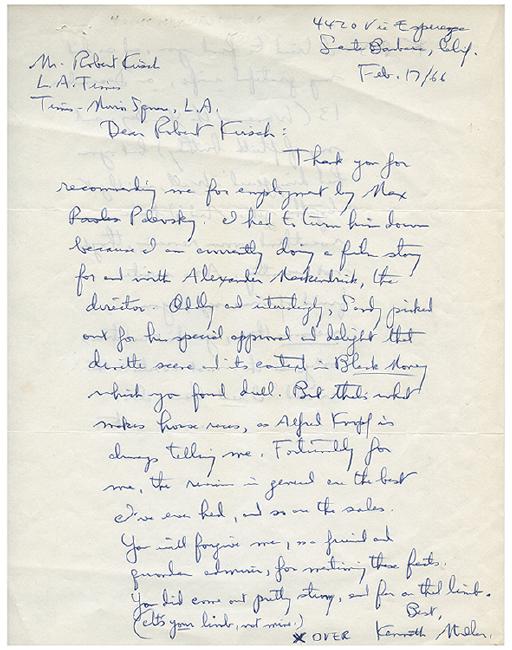 4420 Via Esperanza
Santa Barbara, Calif.
Feb. 17/66
Mr. Robert Kirsch
L.A. Times
Times-Mirror Square, L.A.
Dear Robert Kirsch:
Thank you for
recommending me for employment by Max
Palevsky. I had to turn him down
because I am currently doing a film story
for and with Alexander Mackendrick, the
director. Oddly and interestingly, Sandy picked
out for his special approval and delight that
scene and its context in Black Money
which you found dull. But that's what
makes horse races, as Alfred Knopf is
always telling me. Fortunately for
me, the reviews in general are the best
I've ever had, and so are the sales.
You will forgive me, as a friend and
admirer, for mentioning these facts.
You did come out pretty strong, and far on that limb.
(It's your limb, not mine.)
Best,
Kenneth Millar.
X OVER